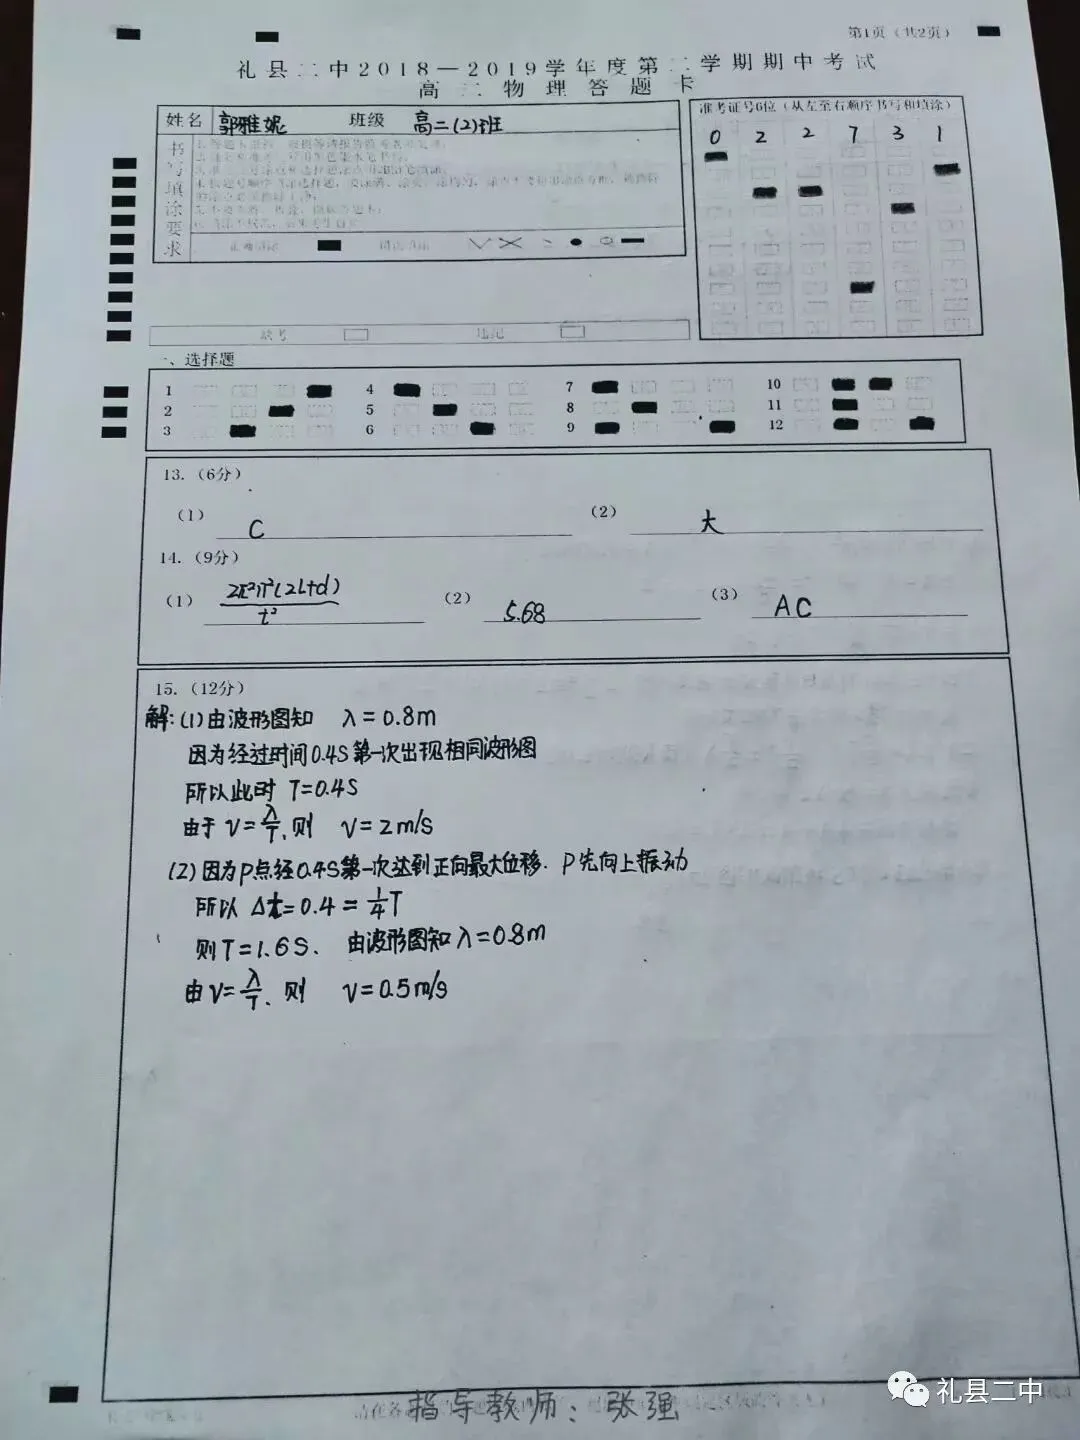 第1页（共2页）
礼县二中2018—2019学年度第二学期期中考试
高二物理答题卡
姓名 郭雅妮 班级 高二(2)班
准考证号6位（从左至右顺序书写和填涂）
0 2 2 7 3 1
书写填涂要求
缺考 违纪
一、选择题
1 4 7 10
2 5 8 11
3 6 9 12
13.（6分）
（1） C （2） 大
14.（9分）
（1） 2π²n²(2L+d)/t² （2） 5.68 （3） AC
15.（12分）
解:(1)由波形图知 λ=0.8m
因为经过时间0.4S第一次出现相同波形图
所以此时 T=0.4S
由于 V=λ/T,则 V=2m/s
(2)因为P点经0.4S第一次达到正向最大位移.P先向上振动
所以 Δt=0.4=1/4T
则T=1.6S. 由波形图知λ=0.8m
由V=λ/T.则 V=0.5m/s
指导教师：张强
礼县二中